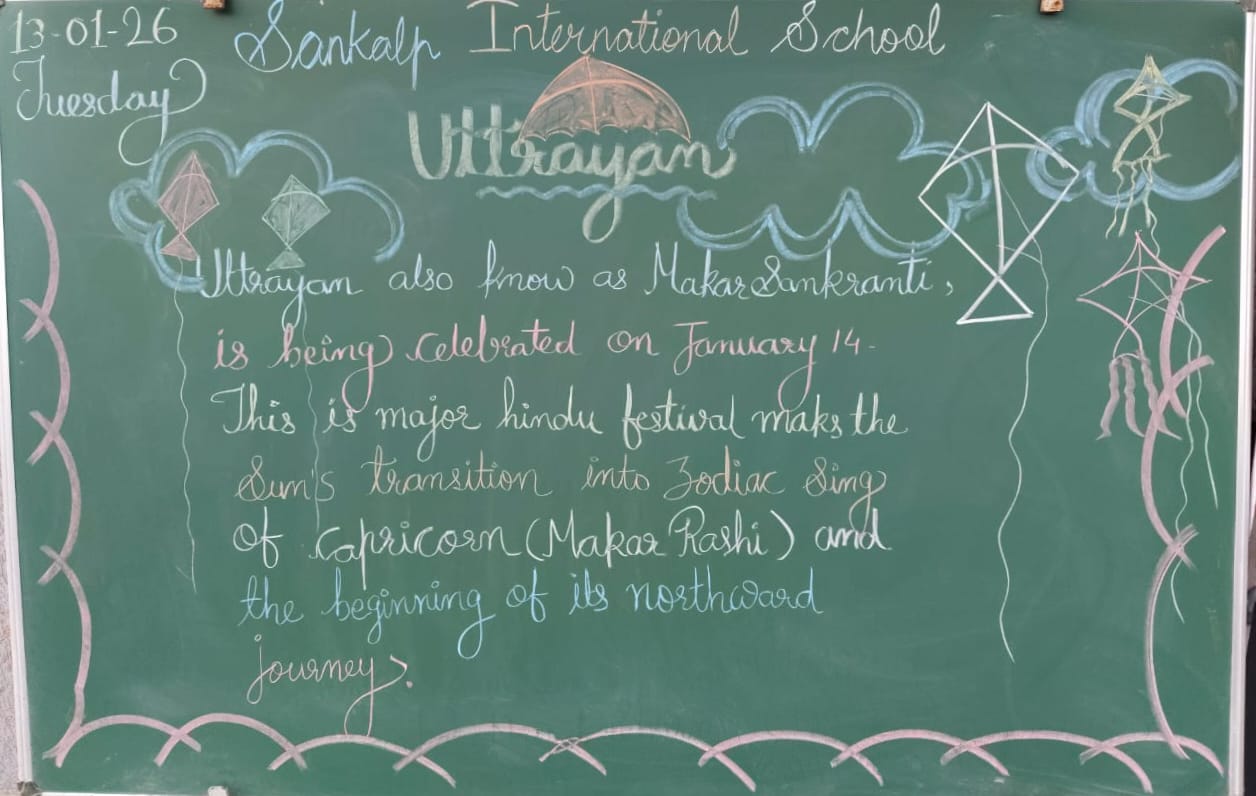 13-01-26
Sankalp International School
Tuesday
Uttrayan
Uttrayan also know as Makar Sankranti,
is being celebrated on January 14.
This is major hindu festival maks the
Sun's transition into Zodiac Sing
of Capricorn (Makar Rashi) and
the beginning of its northward
journey.